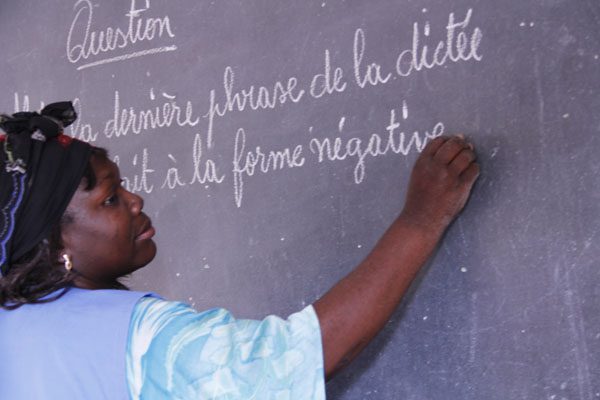 Question
la dernière phrase de la dictée
à la forme négative